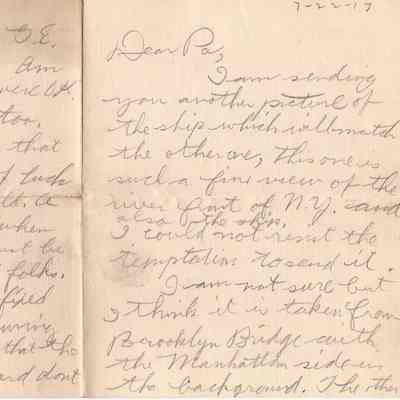 G.E.
am
were OK.
too.
that
of luck
when
must be
folks.
fixed
that the
and dont
7-22-19
Dear Pa,
I am sending
you another picture of
the ship which will match
the other one, This one is
such a fine view of the
river front of N.Y. and
also the ship.
I could not resist the
temptation to send it.
I am not sure but
I think it is taken from
Brooklyn Bridge with
the Manhattan side in
the background. The other